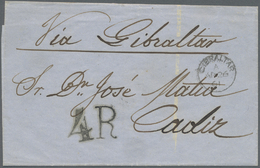 Via Gibraltar
GIBRALTAR
A
Sr. Dn José Matia
4R
Cadiz